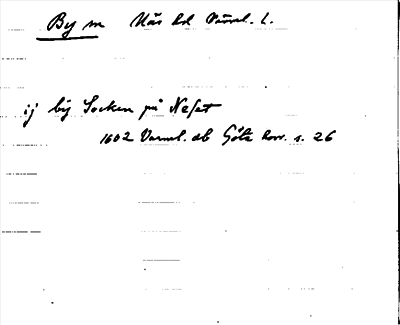 By m Näs hd Värml. l.
ij bÿ Socken på Neset
1602 Värml. ab Götz korr. s. 26